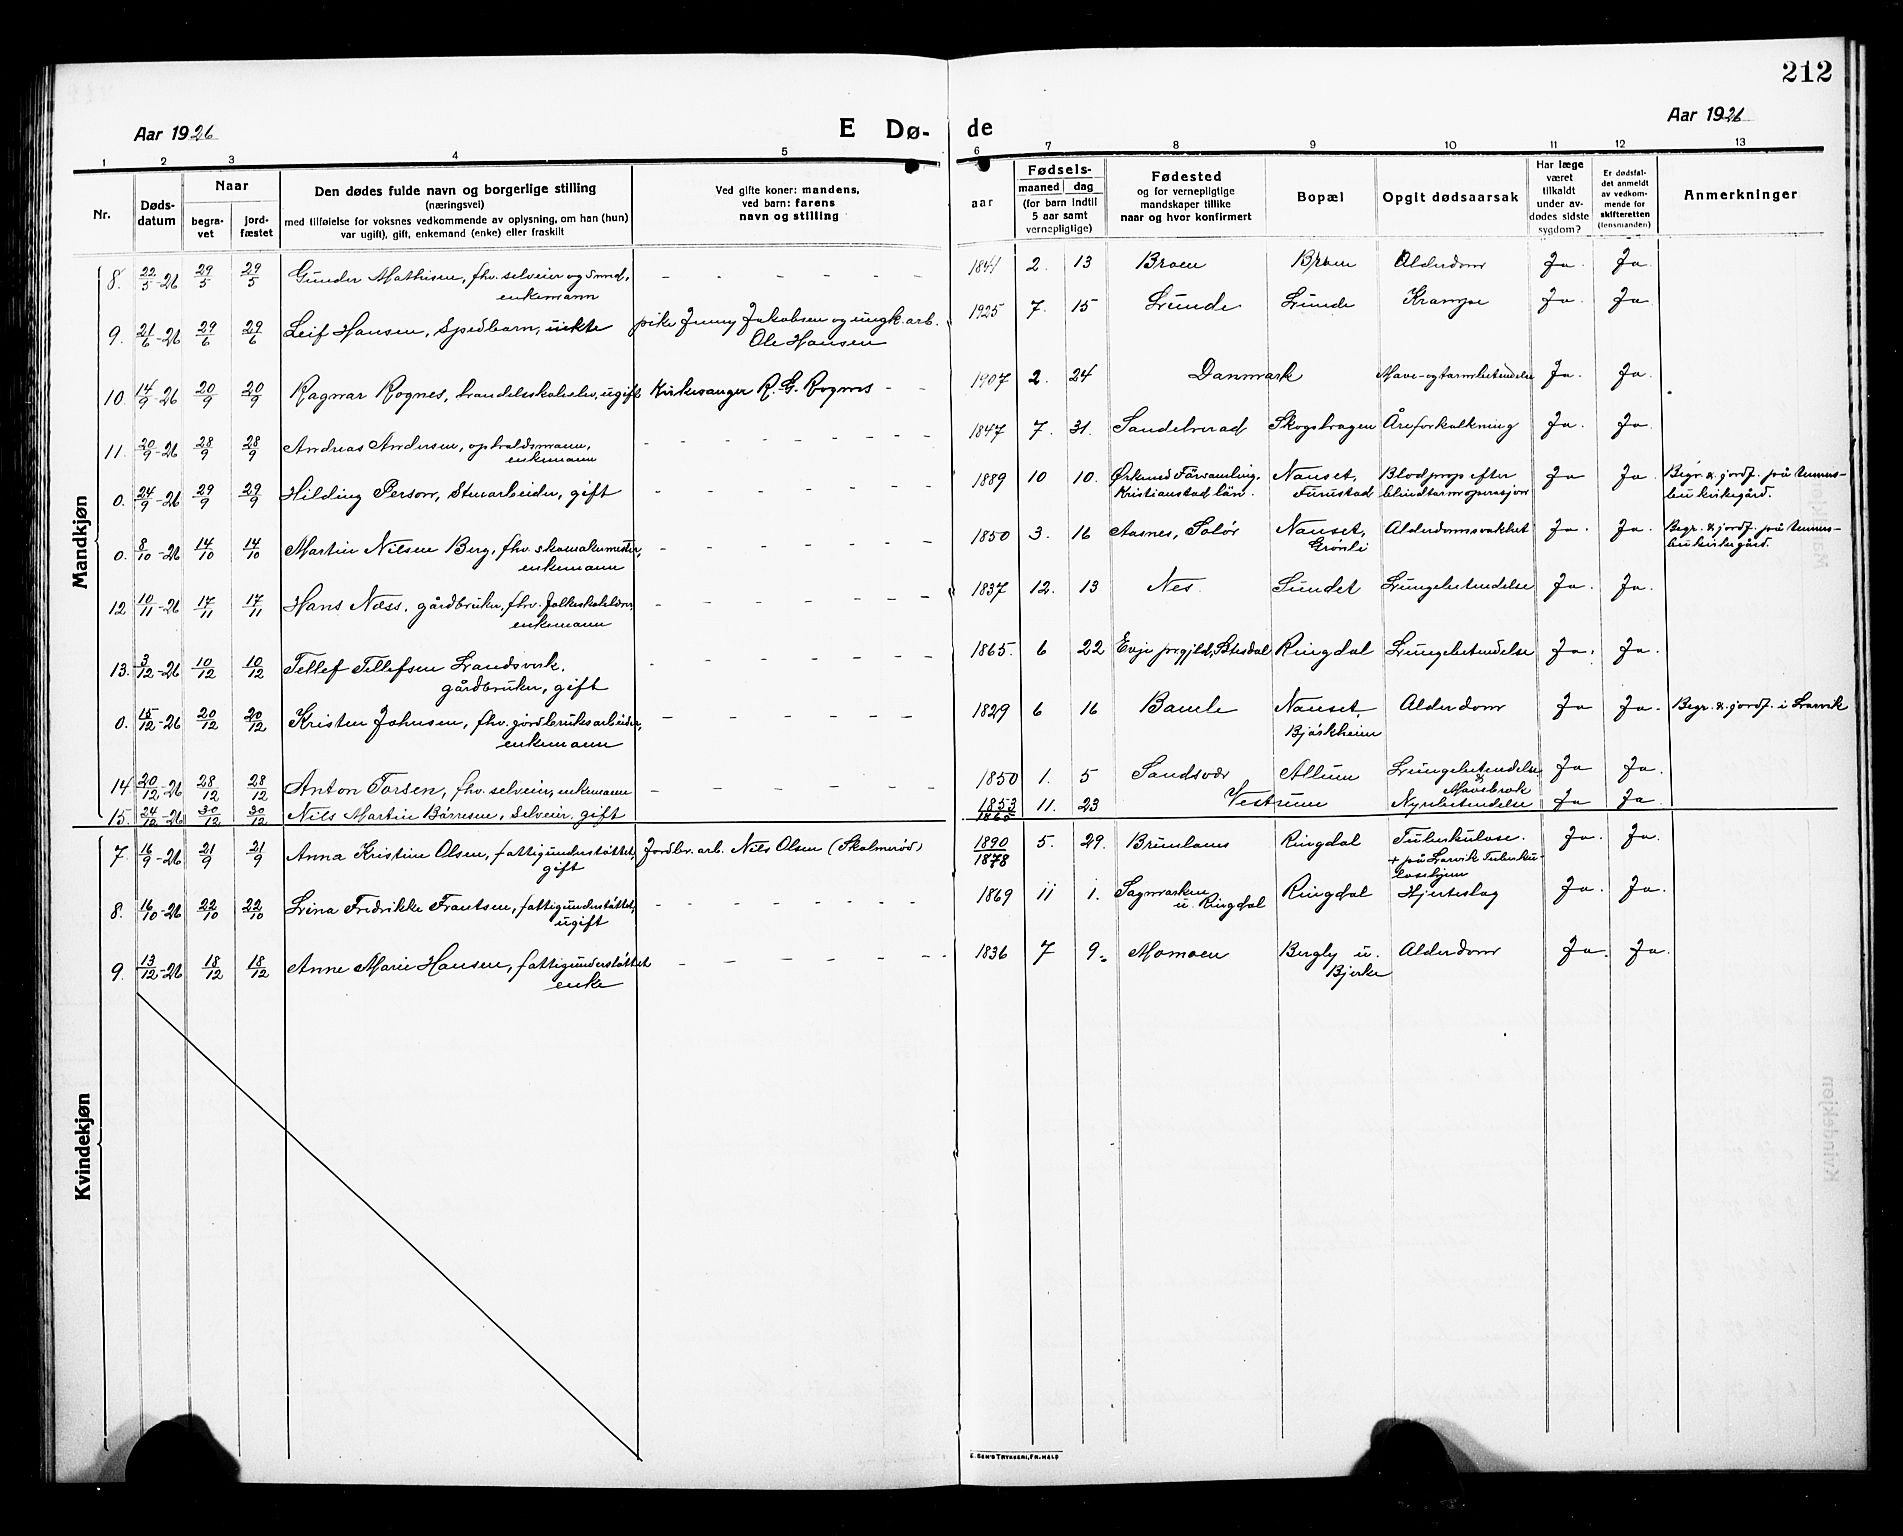 212
Aar 1926
E Dø-
de
Aar 1926
1 2 3 4 5 6 7 8 9 10 11 12 13
Nr.
Døds-
datum
Naar
begra-
vet
jord-
fæstet
Den dødes fulde navn og borgerlige stilling
(næringsvei)
med tilføielse for voksnes vedkommende av oplysning, om han (hun)
var ugift), gift, enkemand (enke) eller fraskilt
Ved gifte koner: mandens,
ved barn: farens
navn og stilling
Fødsels-
aar
maaned dag
(for barn indtil
5 aar samt
vernepligtige)
Fødested
og for vernepligtige
mandskaper tillike
naar og hvor konfirmert
Bopæl
Opgit dødsaarsak
Har læge
været
tilkaldt
under av-
dødes sidste
sygdom?
Er dødsfal-
det anmeldt
av vedkom-
mende for
skifteretten
(lensmanden)
Anmerkninger
Mandkjøn
8. 22/5-26 29/5 29/5 Gunder Mathisen, fhv. selveier og smed, — — — — — — 1841 2. 13 Broen Broen Alderdom Ja. Ja.
enkemann
9. 21/6-26 29/6 29/6 Leif Hansen, Spedbarn, uekte pike Jenny Jakobsen og ungk. arb. 1925 7. 15 Lunde Lunde Krampe Ja. Ja.
Ole Hansen
10. 14/9-26 20/9 20/9 Ragnar Rognes, handelsskoleelev, ugift Kirkesanger R. G. Rognes - - 1907 2. 24 Danmark Mave- og tarmbetendelse Ja. Ja.
11. 20/9-26 28/9 28/9 Andreas Andersen, opholdsmann, - - - - - - - 1847 7. 31. Sandelverad Skogshagen Åreforkalkning Ja. Ja.
enkemann
0. 24/9-26 29/9 29/9 Hilding Person, Stenarbeider, gift - - - - - - - 1889 10 10. Ørkened Församling, Nanset, Blodprop efter Ja Ja. Begr. & jordf. på
Kristianstad län. Furustad blindtarmoperasjon kirkegård.
0. 8/10-26 14/10 14/10 Martin Nilsen Berg, fhv. skomakermester, - - - - - - 1850 3. 16 Aasnes, Solør Nanset, Alderdomssvakhet Ja. Ja. Begr. & jordf. på
enkemann Grønli kirkegård.
12 10/11-26 17/11 17/11 Hans Næss, gårdbruker, fhv. folkeskolelærer, - - - - - - 1837 12. 13 Nes. Sundet Lungebetendelse Ja. Ja.
enkemann
13. 3/12-26 10/12 10/12 Tellef Tellefsen Landsverk. - - - - - - 1865. 6 22 Evje prgjld, Setesdal Ringdal Lungebetendelse Ja. Ja.
gårdbruker, gift
0. 15/12-26 20/12 20/12 Kristen Johnsen, fhv. jordbruksarbeider, — — — — — — 1829 6 16 Bamle Nanset, Alderdom Ja Ja. Begr. & jordf. i Larvik
enkemann Bjørkheim
14. 20/12-26 28/12 28/12 Anton Torsen, fhv. selveier, enkemann — — — — — — 1850 1. 5 Sandsvær Allum Lungebetendelse Ja Ja.
& Mavebrok
15. 24/12-26 30/12 30/12 Nils Martin Børresen, Selveier, gift 1853/1865 11. 23 Vestrum Nyrebetendelse Ja Ja.
Kvindekjøn
7. 16/9-26 21/9 21/9 Anna Kristine Olsen, fattigunderstøttet, Jordbr. arb. Nils Olsen (Skalmerød) 1890/1878 5. 29. Brunlanes Ringdal Tuberkulose. Ja. Ja.
gift + på Larvik Tuberku-
losehjem
8. 16/10-26 22/10 22/10 Lina Fredrikke Frantsen, fattigunderstøttet, - - - - - - - 1869 11 1. Sagmarken Ringdal Hjerteslag Ja. Ja.
ugift u. Ringdal
9. 13/12-26 18/12 18/12 Anne Marie Hansen, fattigunderstøttet - - - - - - 1836 7 9. Momoen Bergly u. Alderdom Ja. Ja.
enke Bjerke
E. SEM'S TRYKKERI, FR.HALD